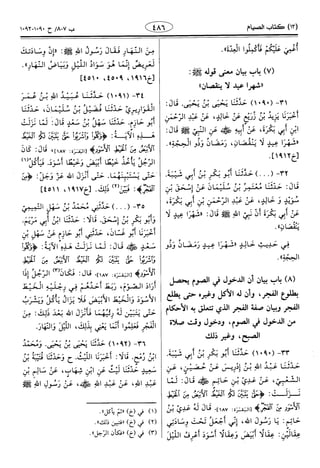 (١٣) كتاب الصيام
٤٨٦
ب ٨،٧/ ح ١٠٩٠-١٠٩٢
أُغْمِيَ عَلَيْكُمْ فَأَكْمِلُوا الْعِدَّةَ».
(٧) باب بيان معنى قوله ﷺ:
«شهرا عيد لا ينقصان»
٣١- (١٠٨٩) حَدَّثَنَا يَحْيَى بْنُ يَحْيَى. قَالَ:
أَخْبَرَنَا يَزِيدُ بْنُ زُرَيْعٍ عَنْ خَالِدٍ، عَنْ عَبْدِ الرَّحْمَنِ
ابْنِ أَبِي بَكْرَةَ، عَنْ أَبِيهِ عَنِ النَّبِيِّ ﷺ قَالَ:
«شَهْرَا عِيدٍ لَا يَنْقُصَانِ، رَمَضَانُ وَذُو الْحِجَّةِ».
[خ١٩١٢].
٣٢- (...) حَدَّثَنَا أَبُو بَكْرِ بْنُ أَبِي شَيْبَةَ.
قَالَ: حَدَّثَنَا مُعْتَمِرُ بْنُ سُلَيْمَانَ عَنْ إِسْحَقَ بْنِ
سُوَيْدٍ وَخَالِدٍ، عَنْ عَبْدِ الرَّحْمَنِ بْنِ أَبِي بَكْرَةَ،
عَنْ أَبِي بَكْرَةَ أَنَّ نَبِيَّ اللهِ ﷺ قَالَ: «شَهْرَا عِيدٍ لَا
يَنْقُصَانِ».
فِي حَدِيثِ خَالِدٍ «شَهْرَا عِيدٍ رَمَضَانُ وَذُو
الْحِجَّةِ».
(٨) باب بيان أن الدخول في الصوم يحصل
بطلوع الفجر، وأن له الأكل وغيره حتى يطلع
الفجر وبيان صفة الفجر الذي تتعلق به الأحكام
من الدخول في الصوم، ودخول وقت صلاة
الصبح، وغير ذلك
٣٣- (١٠٩٠) حَدَّثَنَا أَبُو بَكْرِ بْنُ أَبِي شَيْبَةَ.
حَدَّثَنَا عَبْدُ اللهِ بْنُ إِدْرِيسَ عَنْ حُصَيْنٍ، عَنِ
الشَّعْبِيِّ، عَنْ عَدِيِّ بْنِ حَاتِمٍ ﷺ قَالَ: لَمَّا
نَزَلَتْ: ﴿حَتَّى يَتَبَيَّنَ لَكُمُ الْخَيْطُ الْأَبْيَضُ مِنَ الْخَيْطِ
الْأَسْوَدِ مِنَ الْفَجْرِ﴾ [البقرة: ١٨٧] قَالَ لَهُ عَدِيُّ بْنُ
حَاتِمٍ: يَا رَسُولَ اللهِ، إِنِّي أَجْعَلُ تَحْتَ وِسَادَتِي
عِقَالَيْنِ: عِقَالًا أَبْيَضَ وَعِقَالًا أَسْوَدَ أَعْرِفُ اللَّيْلَ
مِنَ النَّهَارِ فَقَالَ رَسُولُ اللهِ ﷺ: «إِنَّ وِسَادَتَكَ
لَعَرِيضٌ إِنَّمَا هُوَ سَوَادُ اللَّيْلِ وَبَيَاضُ النَّهَارِ».
[خ١٩١٦، ٤٥٠٩، ٤٥١٠]
٣٤- (١٠٩١) حَدَّثَنَا عُبَيْدُ اللهِ بْنُ عُمَرَ
الْقَوَارِيرِيُّ حَدَّثَنَا فُضَيْلُ بْنُ سُلَيْمَانَ، حَدَّثَنَا
أَبُو حَازِمٍ. حَدَّثَنَا سَهْلُ بْنُ سَعْدٍ قَالَ: لَمَّا نَزَلَتْ
هَذِهِ الْآيَةُ: ﴿وَكُلُوا وَاشْرَبُوا حَتَّى يَتَبَيَّنَ لَكُمُ الْخَيْطُ
الْأَبْيَضُ مِنَ الْخَيْطِ الْأَسْوَدِ﴾ [البقرة: ١٨٧] قَالَ: كَانَ
الرَّجُلُ يَأْخُذُ خَيْطًا أَبْيَضَ وَخَيْطًا أَسْوَدَ. فَيَأْكُلُ(١)
حَتَّى يَسْتَبِينَهُمَا. حَتَّى أَنْزَلَ اللهُ عَزَّ وَجَلَّ: ﴿مِنَ
الْفَجْرِ﴾ فَبَيَّنَ(٢) ذَلِكَ. [خ١٩١٧، ٤٥١١]
٣٥- (...) حَدَّثَنِي مُحَمَّدُ بْنُ سَهْلٍ التَّمِيمِيُّ
وَأَبُو بَكْرِ بْنُ إِسْحَقَ. قَالَا: حَدَّثَنَا ابْنُ أَبِي مَرْيَمَ.
أَخْبَرَنَا أَبُو غَسَّانَ، حَدَّثَنِي أَبُو حَازِمٍ عَنْ سَهْلِ بْنِ
سَعْدٍ ﷺ قَالَ: لَمَّا نَزَلَتْ هَذِهِ الْآيَةُ: ﴿وَكُلُوا
وَاشْرَبُوا حَتَّى يَتَبَيَّنَ لَكُمُ الْخَيْطُ الْأَبْيَضُ مِنَ الْخَيْطِ
الْأَسْوَدِ﴾ [البقرة: ١٨٧] قَالَ: فَكَانَ(٣) الرَّجُلُ إِذَا
أَرَادَ الصَّوْمَ، رَبَطَ أَحَدُهُمْ فِي رِجْلَيْهِ الْخَيْطَ
الْأَسْوَدَ وَالْخَيْطَ الْأَبْيَضَ فَلَا يَزَالُ يَأْكُلُ وَيَشْرَبُ
حَتَّى يَتَبَيَّنَ لَهُ رِئْيُهُمَا فَأَنْزَلَ اللهُ بَعْدَ ذَلِكَ: مِنَ
الْفَجْرِ فَعَلِمُوا أَنَّمَا يَعْنِي بِذَلِكَ، اللَّيْلَ وَالنَّهَارَ.
٣٦- (١٠٩٢) حَدَّثَنَا يَحْيَى بْنُ يَحْيَى، وَمُحَمَّدُ
بْنُ رُمْحٍ. قَالَا: أَخْبَرَنَا اللَّيْثُ. ح وَحَدَّثَنَا قُتَيْبَةُ بْنُ
سَعِيدٍ حَدَّثَنَا لَيْثٌ عَنِ ابْنِ شِهَابٍ، عَنْ سَالِمِ بْنِ
عَبْدِ اللهِ، عَنْ عَبْدِ اللهِ ﷺ، عَنْ رَسُولِ اللهِ ﷺ
(١) في (خ) «ثم يأكل».
(٢) في (خ) «فتبين ذلك».
(٣) في (خ) «فكان الرجل».